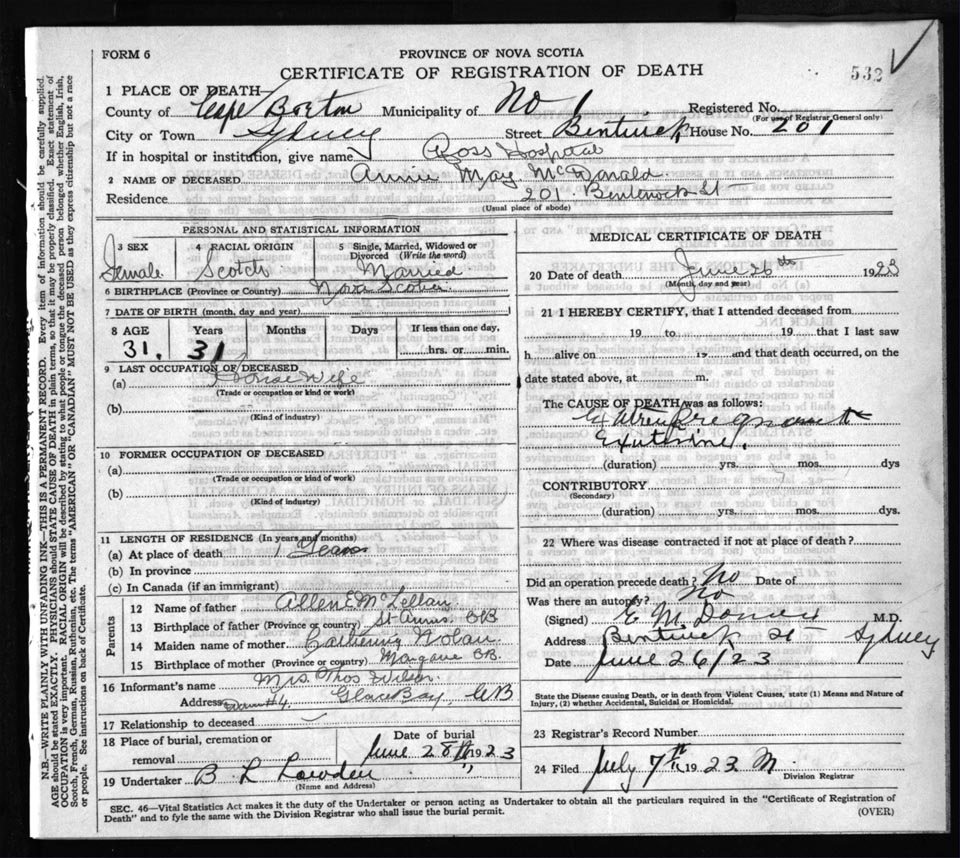 FORM 6
PROVINCE OF NOVA SCOTIA
CERTIFICATE OF REGISTRATION OF DEATH
532
1 PLACE OF DEATH—
County of Cape Breton Municipality of No 1 Registered No.
(For use of Registrar General only)
City or Town Sydney Street Bentinck House No. 201
If in hospital or institution, give name Ross Hospital
2 NAME OF DECEASED Annie May McDonald
Residence 201 Bentinck St
(Usual place of abode)
PERSONAL AND STATISTICAL INFORMATION
3 SEX 4 RACIAL ORIGIN 5 Single, Married, Widowed or
Divorced (Write the word)
Female Scotch Married
6 BIRTHPLACE (Province or Country) Nova Scotia
7 DATE OF BIRTH (month, day and year)
8 AGE Years Months Days If less than one day,
31. 31 hrs. or min.
9 LAST OCCUPATION OF DECEASED
(a) House Wife
(Trade or occupation or kind or work)
(b)
(Kind of industry)
10 FORMER OCCUPATION OF DECEASED
(a)
(Trade or occupation or kind of work)
(b)
(Kind of industry)
11 LENGTH OF RESIDENCE (In years and months)
(a) At place of death 1 Years
(b) In province
(c) In Canada (if an immigrant)
Parents
12 Name of father Allen E McLellan
13 Birthplace of father (Province or country) St Anns. CB
14 Maiden name of mother Catherine Nolan
15 Birthplace of mother (Province or country) Margaree CB.
16 Informant's name Mrs Thos
Address #4, Glace Bay, CB
17 Relationship to deceased
18 Place of burial, cremation or
removal
Date of burial
June 28th 1923
19 Undertaker B L Lowden "
(Name and Address)
MEDICAL CERTIFICATE OF DEATH
20 Date of death June 26th 1923
(Month, day and year)
21 I HEREBY CERTIFY, that I attended deceased from
19 to 19 that I last saw
h alive on 19 and that death occurred, on the
date stated above, at m.
The CAUSE OF DEATH was as follows:
(duration) yrs. mos. dys
CONTRIBUTORY
(Secondary)
(duration) yrs. mos. dys.
22 Where was disease contracted if not at place of death?
Did an operation precede death? No Date of
Was there an autopsy? No
(Signed) E M M.D.
Address Bentinck St Sydney
Date June 26/23
State the Disease causing Death, or in death from Violent Causes, state (1) Means and Nature of
Injury, (2) whether Accidental, Suicidal or Homicidal.
23 Registrar's Record Number
24 Filed July 7th 1923 M
Division Registrar
SEC. 46—Vital Statistics Act makes it the duty of the Undertaker or person acting as Undertaker to obtain all the particulars required in the "Certificate of Registration of
Death" and to fyle the same with the Division Registrar who shall issue the burial permit.
(OVER)
N.B.—WRITE PLAINLY WITH UNFADING INK—THIS IS A PERMANENT RECORD. Every item of information should be carefully supplied.
AGE should be stated EXACTLY. PHYSICIANS should STATE CAUSE OF DEATH in plain terms, so that it may be properly classified. Exact statement of
OCCUPATION is very important. RACIAL ORIGIN will be described by stating to what people or tongue the deceased person belonged whether English, Irish,
Scotch, French, German, Russian, Ruthenian, etc. The terms "AMERICAN" OR "CANADIAN" MUST NOT BE USED as they express citizenship but not a race
or people. See instructions on back of Certificate.